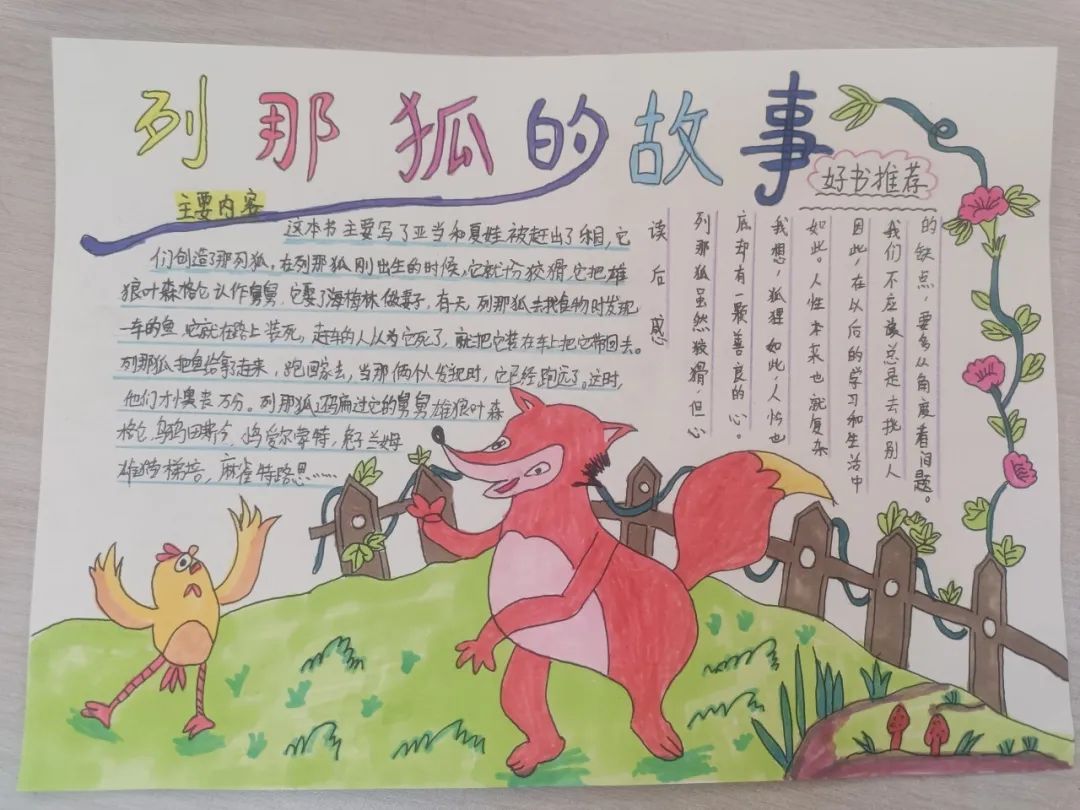 列那狐的故事
好书推荐
主要内容
这本书主要写了亚当和夏娃被赶出了和园,它
们创造了那列狐。在列那狐刚出生的时候,它就十分狡猾,它把雄
狼叶森格仑认作舅舅,它娶了海梅林做妻子,有天,列那狐去找食物时发现
一车的鱼,它就在路上装死,赶车的人以为它死了,就把它装在车上把它带回去。
列那狐把鱼给拿走来,跑回家去,当那俩个人发现时,它已经跑远了。这时,
他们才懊丧万分。列那狐还骗过它的舅舅雄狼叶森
格仑,乌鸦田斯令,鸡爱尔蒙特,兔子兰姆
雄猫梯培,麻雀特路恩……
读后感
列那狐虽然狡猾,但心
底却有一颗善良的心。
我想,狐狸如此,人性也
如此。人性本来也就复杂
因此,在以后的学习和生活中
我们不应该总是去挑别人
的缺点,要多从角度看问题。